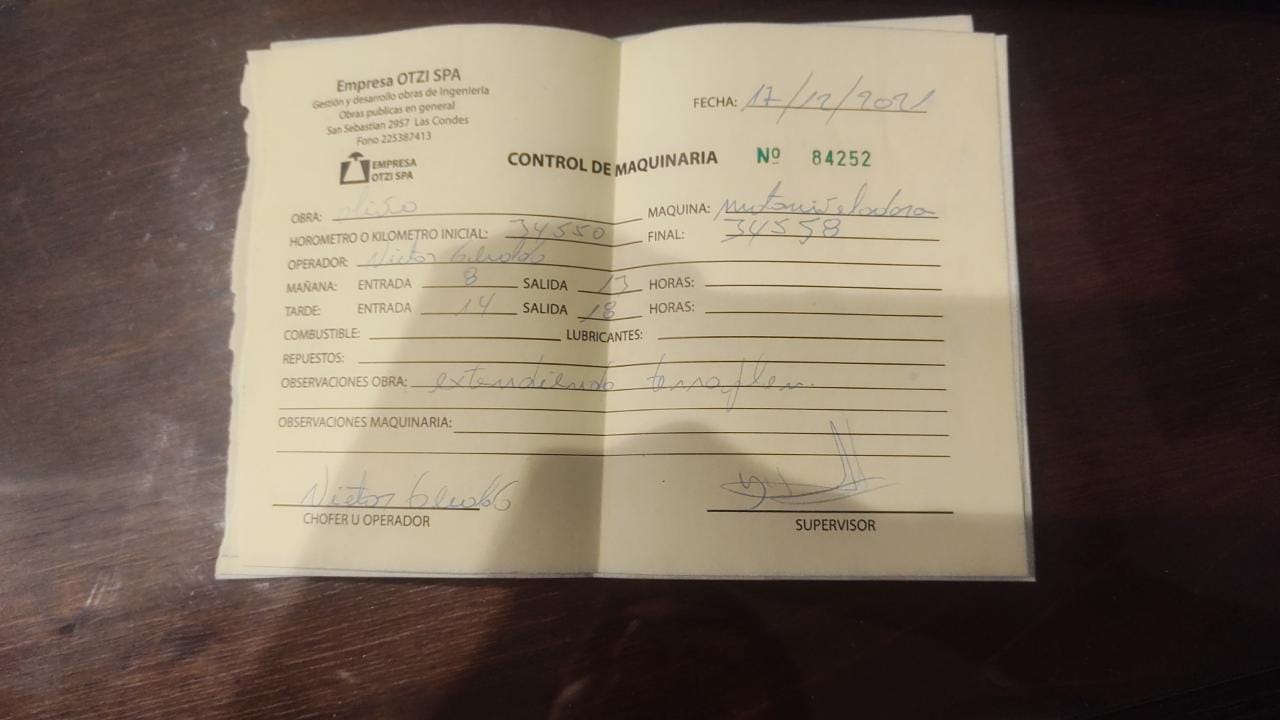 Empresa OTZI SPA
Gestión y desarrollo obras de Ingeniería
Obras publicas en general
San Sebastian 2957 Las Condes
Fono 225387413
EMPRESA
OTZI SPA
FECHA: 17/12/2021
CONTROL DE MAQUINARIA Nº 84252
OBRA: MAQUINA: motoniveladora
HOROMETRO O KILOMETRO INICIAL: 34550 FINAL: 34558
OPERADOR: Victor
MAÑANA: ENTRADA 8 SALIDA 13 HORAS:
TARDE: ENTRADA 14 SALIDA 18 HORAS:
COMBUSTIBLE: LUBRICANTES:
REPUESTOS:
OBSERVACIONES OBRA: extendiendo terraplen.
OBSERVACIONES MAQUINARIA:
Victor
CHOFER U OPERADOR SUPERVISOR